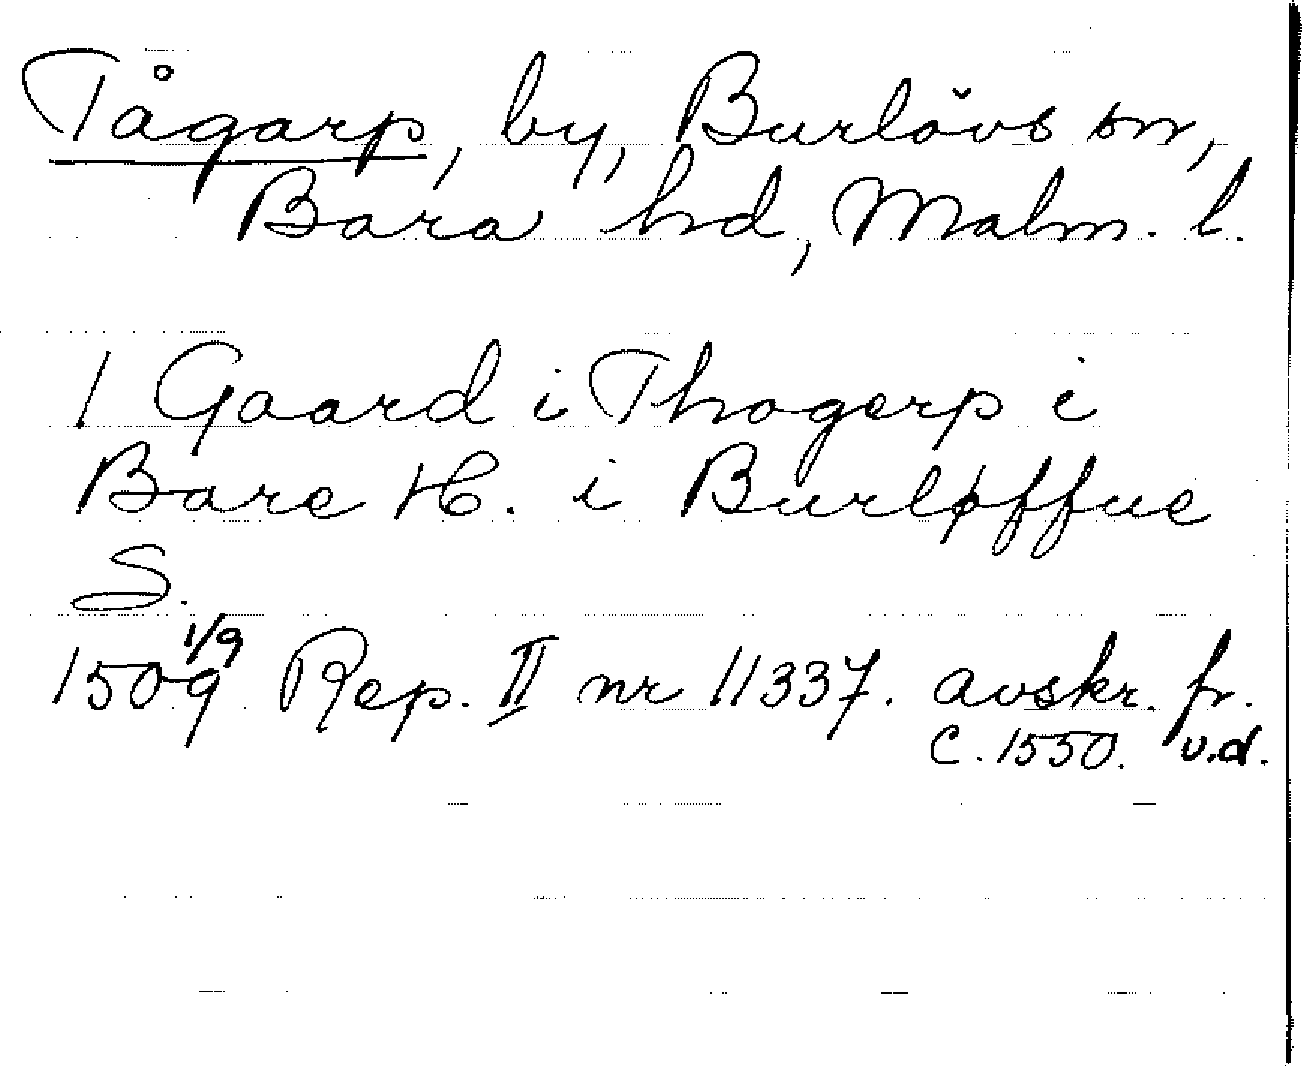 Tågarp, by, Burlövs sn,
Bara hd, Malm. l.
1 Gaard i Thogerp i
Bare H. i Burløffue
S.
1509 1/9 Rep. II nr 11337. avskr. fr.
c. 1550. u.d.